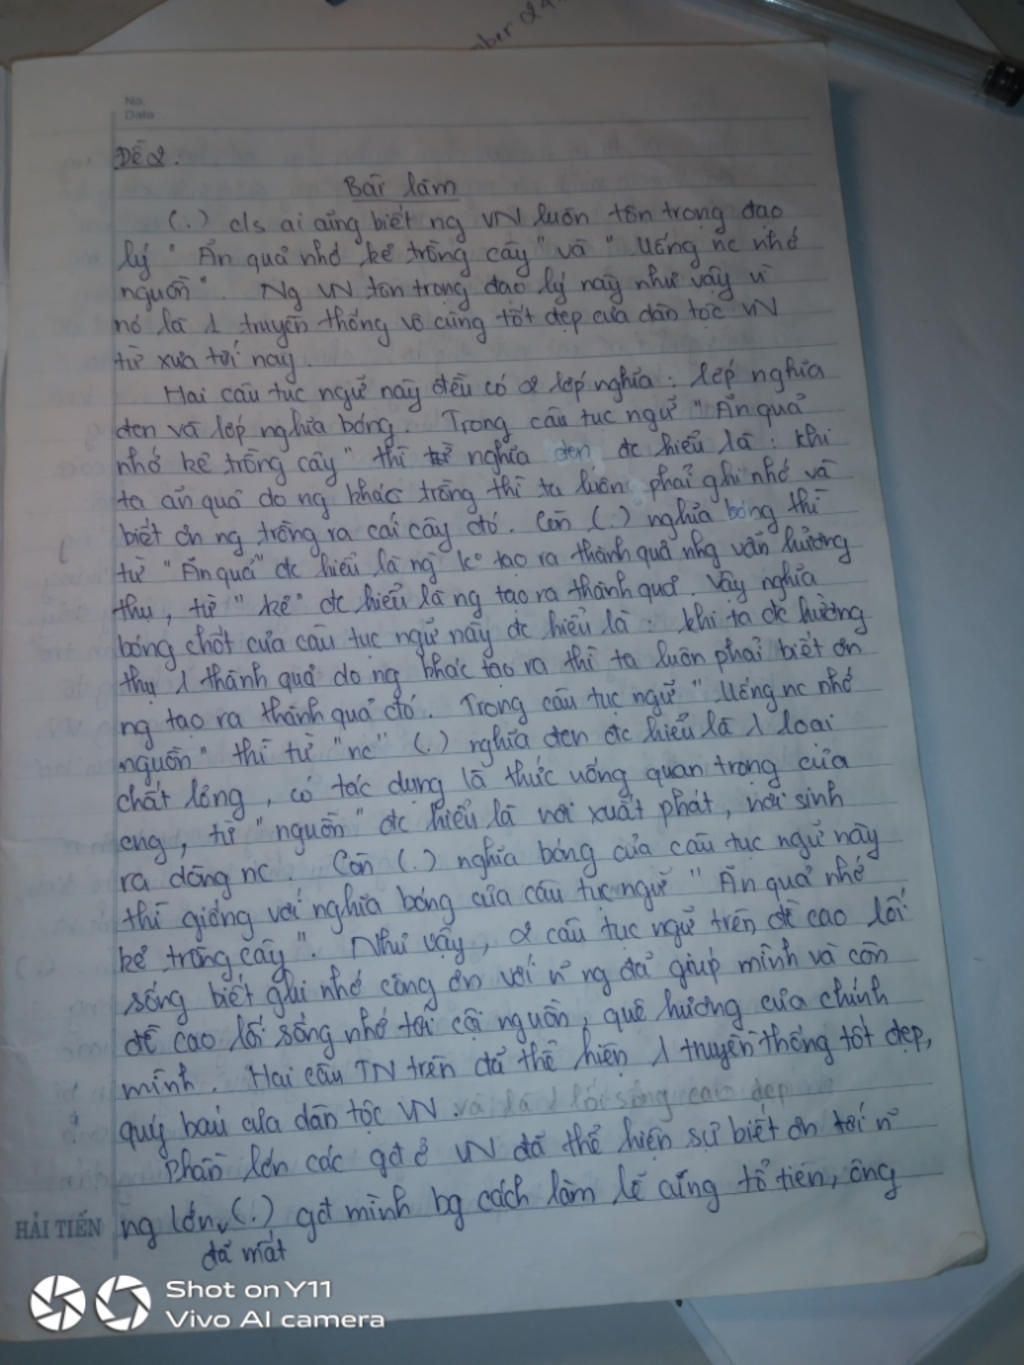 mber 24
No.
Date
Đề 2.
Bài làm
(.) c/s ai cũng biết ng VN luôn tôn trọng đạo
lý " Ăn quả nhớ kẻ trồng cây " và " Uống nc nhớ
nguồn ". Ng VN tôn trọng đạo lý này như vậy vì
nó là 1 truyền thống vô cùng tốt đẹp của dân tộc VN
từ xưa tới nay.
Hai câu tục ngữ này đều có 2 lớp nghĩa : lớp nghĩa
đen và lớp nghĩa bóng. Trong câu tục ngữ " Ăn quả
nhớ kẻ trồng cây " thì nghĩa đen đc hiểu là : khi
ta ăn quả do ng khác trồng thì ta luôn phải ghi nhớ và
biết ơn ng trồng ra cái cây đó. Còn (.) nghĩa bóng thì
từ " Ăn quả " đc hiểu là ng k° tạo ra thành quả nhg vẫn hưởng
thụ, từ " kẻ " đc hiểu là ng tạo ra thành quả. Vậy nghĩa
bóng chốt của câu tục ngữ này đc hiểu là : khi ta đc hưởng
thụ 1 thành quả do ng khác tạo ra thì ta luôn phải biết ơn
ng tạo ra thành quả đó. Trong câu tục ngữ " Uống nc nhớ
nguồn " thì từ "nc" (.) nghĩa đen đc hiểu là 1 loại
chất lỏng, có tác dụng là thức uống quan trọng của
cng, từ "nguồn" đc hiểu là nơi xuất phát, nơi sinh
ra dòng nc. Còn (.) nghĩa bóng của câu tục ngữ này
thì giống với nghĩa bóng của câu tục ngữ " Ăn quả nhớ
kẻ trồng cây ". Như vậy, 2 câu tục ngữ trên đề cao lối
sống biết ghi nhớ công ơn với n~ ng đã giúp mình và còn
đề cao lối sống nhớ tới cội nguồn, quê hương của chính
mình. Hai câu TN trên đã thể hiện 1 truyền thống tốt đẹp,
quý báu của dân tộc VN và là 1 lối sống cao đẹp
Phần lớn các gđ ở VN đã thể hiện sự biết ơn tới n~
ng lớn (.) gđ mình bg cách làm lễ cúng tổ tiên, ông
đã mất
HẢI TIẾN
Shot on Y11
Vivo AI camera